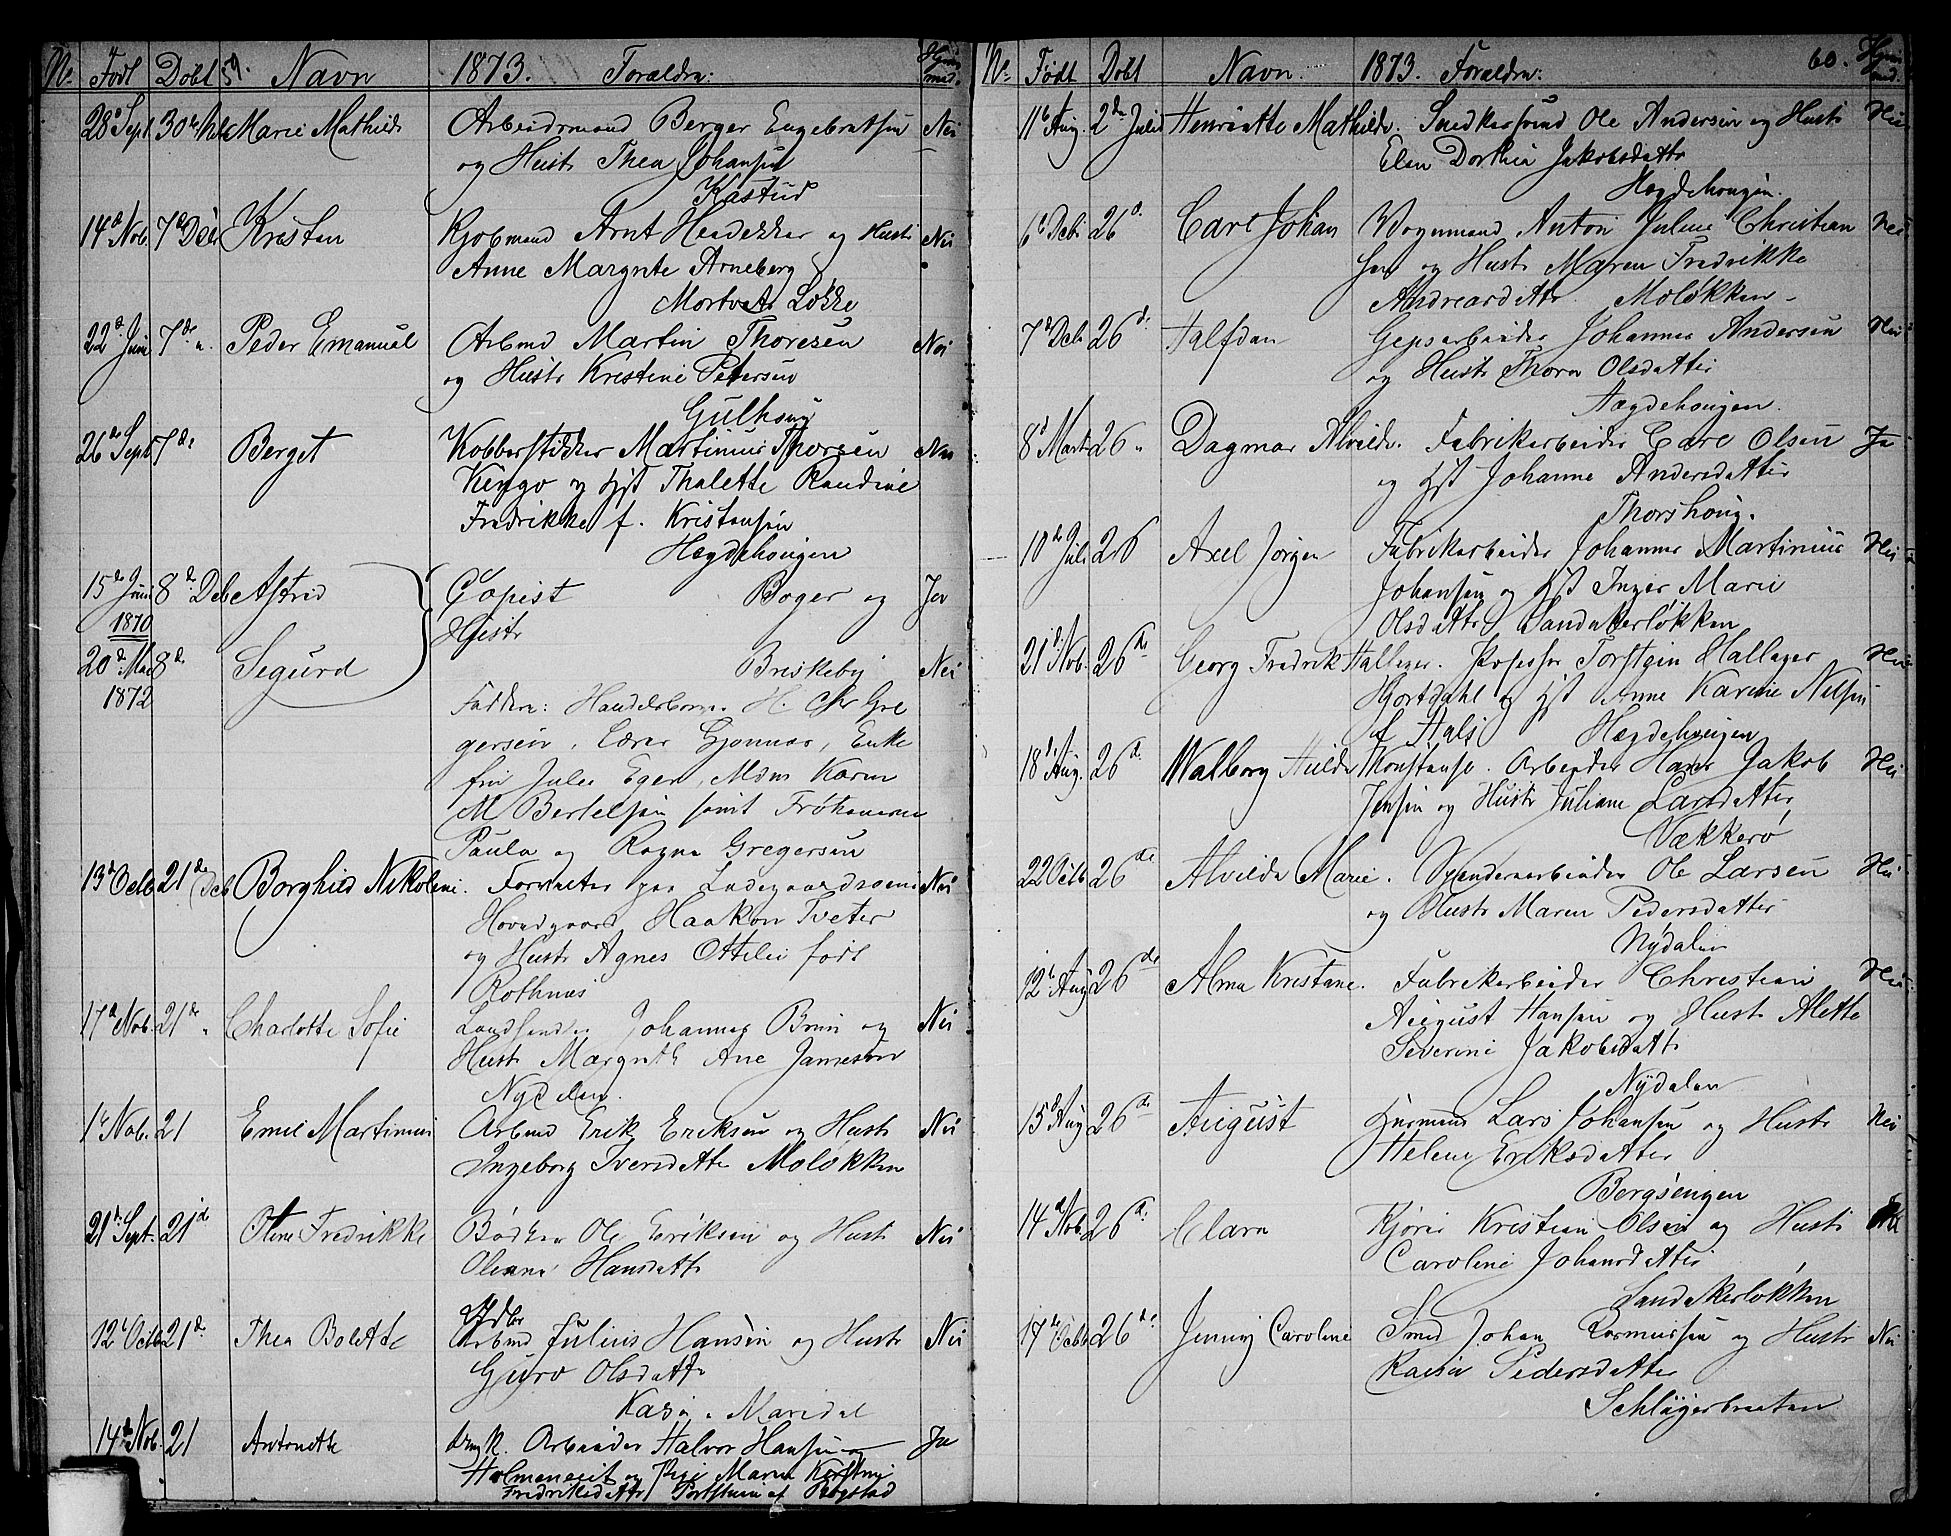 No Født Døbt 59. Navn 1873. Forældre: Hjemmed.
28d Sept. 30te Marie Mathilde Arbeidsmand Berger Engebretsen Nei
og Hustr Thea Johansen
Kastud
14d Nob. 7d Deb. Kristen Kjøbmand Arnt og Hustr Nei
Anne Margrete Arneberg
Løkke
22d Juni 7de " Peder Emanuel Arbmd Martin Thoresen Nei
og Hustr Kristine Petersen
Gulhoug
26de Sept 7de Berget Kobberstikker Martinus Thoresen Nei
og Hst Thalette Randine
Fredrikke f. Kristensen
Hægdehougen
15de Juni 8de Deb Astrid Copist Boger og Ja
1870 Hustr
20de Mai 8de Segurd Briskeby Nei
1872 Faddere: H. Chr Gre
gersen, Lærer Gjønnes, Enke
fru Julie Eger, Mdm Karen
M Bertelsen samt Frøknerne
Paula og Ragna Gregersen
13d Octb 21de Deb Borghild Nikoline. Forvalter paa Ladegaardsøens Nei
Hovedgaard Haakon Tveter
og Hustr Agnes Ottilie født
Rothnes
17d Nob. 21de " Charlotte Sofie Johannes Brun og Nei
Hustr Margrethe Ane Jameson
Nydalen.
1d Nob. 21 Emil Martinius Arbmd Erik Eriksen og Hustr Nei
Ingeborg Iversdattr Moløkken
21d Sept. 21d Oline Fredrikke Bødker Ole Eriksen og Hustr Nei
Oleane Hansdattr
12t Octb 21d. Thea Bolette Arbmd Julius Hansen og Hustr Nei
Guro Olsdattr
Maridal
14de Nob. 21 Antonette Arbeider Halvor Hansen Ja
og Pige Maren
Fredriksdattr
No Født Døbt Navn. 1873. Forældre: 60. Hjemmed.
11te Aug. 2den Juled Henriette Mathilde. Snedkersvend Ole Andersen og Hustr Nei
Elen Dorthea Jakobsdattr
Hægdehougen.
6te Deb 26d. Carl Johan Vognmand Anton Julius Christian Nei
sen og Hustr Maren Fredrikke
Andreasdattr. Moløkken –
7d Deb 26d. Halfdan Gipsarbeider Johannes Andersen Nei
og Hustr Thora Olsdatter
Hægdehougen.
8d Marts 26 " Dagmar Alvilde. Fabrikarbeider Carl Olsen Ja
og Hst Johanne Andersdatter
Thorshoug.
10de Juli 26 Axel Jørgen Fabrikarbeider Johannes Martinius Nei
Johansen og Hst Inger Marie
Olsdattr Sandakerløkken
21d. Nob. 26de Georg Fredrik Hallager. Professor Torstein Hallager Nei
Hjortdahl og Hst Anne Karine Nilsen
f Hals Hægdehougen
18d Aug. 26d. Walborg Hilda Konstanse. Arbeider Hans Jakob Nei
Jensen og Hustr Juliane Larsdatter
Vækkerø
22 Octb. 26de Alvilda Marie. Ole Larsen Nei
og Hustr Maren Pedersdatter
Nydalen
12te Aug 26de Alma Kristiane. Fabrikarbeider Christian Nei
August Hansen og Hustr Alette
Severine Jakobsdattr
Nydalen
15d Aug 26de August Husmand Lars Johansen og Hustr Nei
Helene Eriksdatter
Bergsengen
14d Nob. 26d. Clara Kjører Kristian Olsen og Hustr Nei
Caroline Johansdatter
Sandakerløkken
17de Octb 26de. Jenny Caroline Smed Johan Rasmussen og Hustr Nei
Kaisa Pedersdatter
Schløgerbraaten